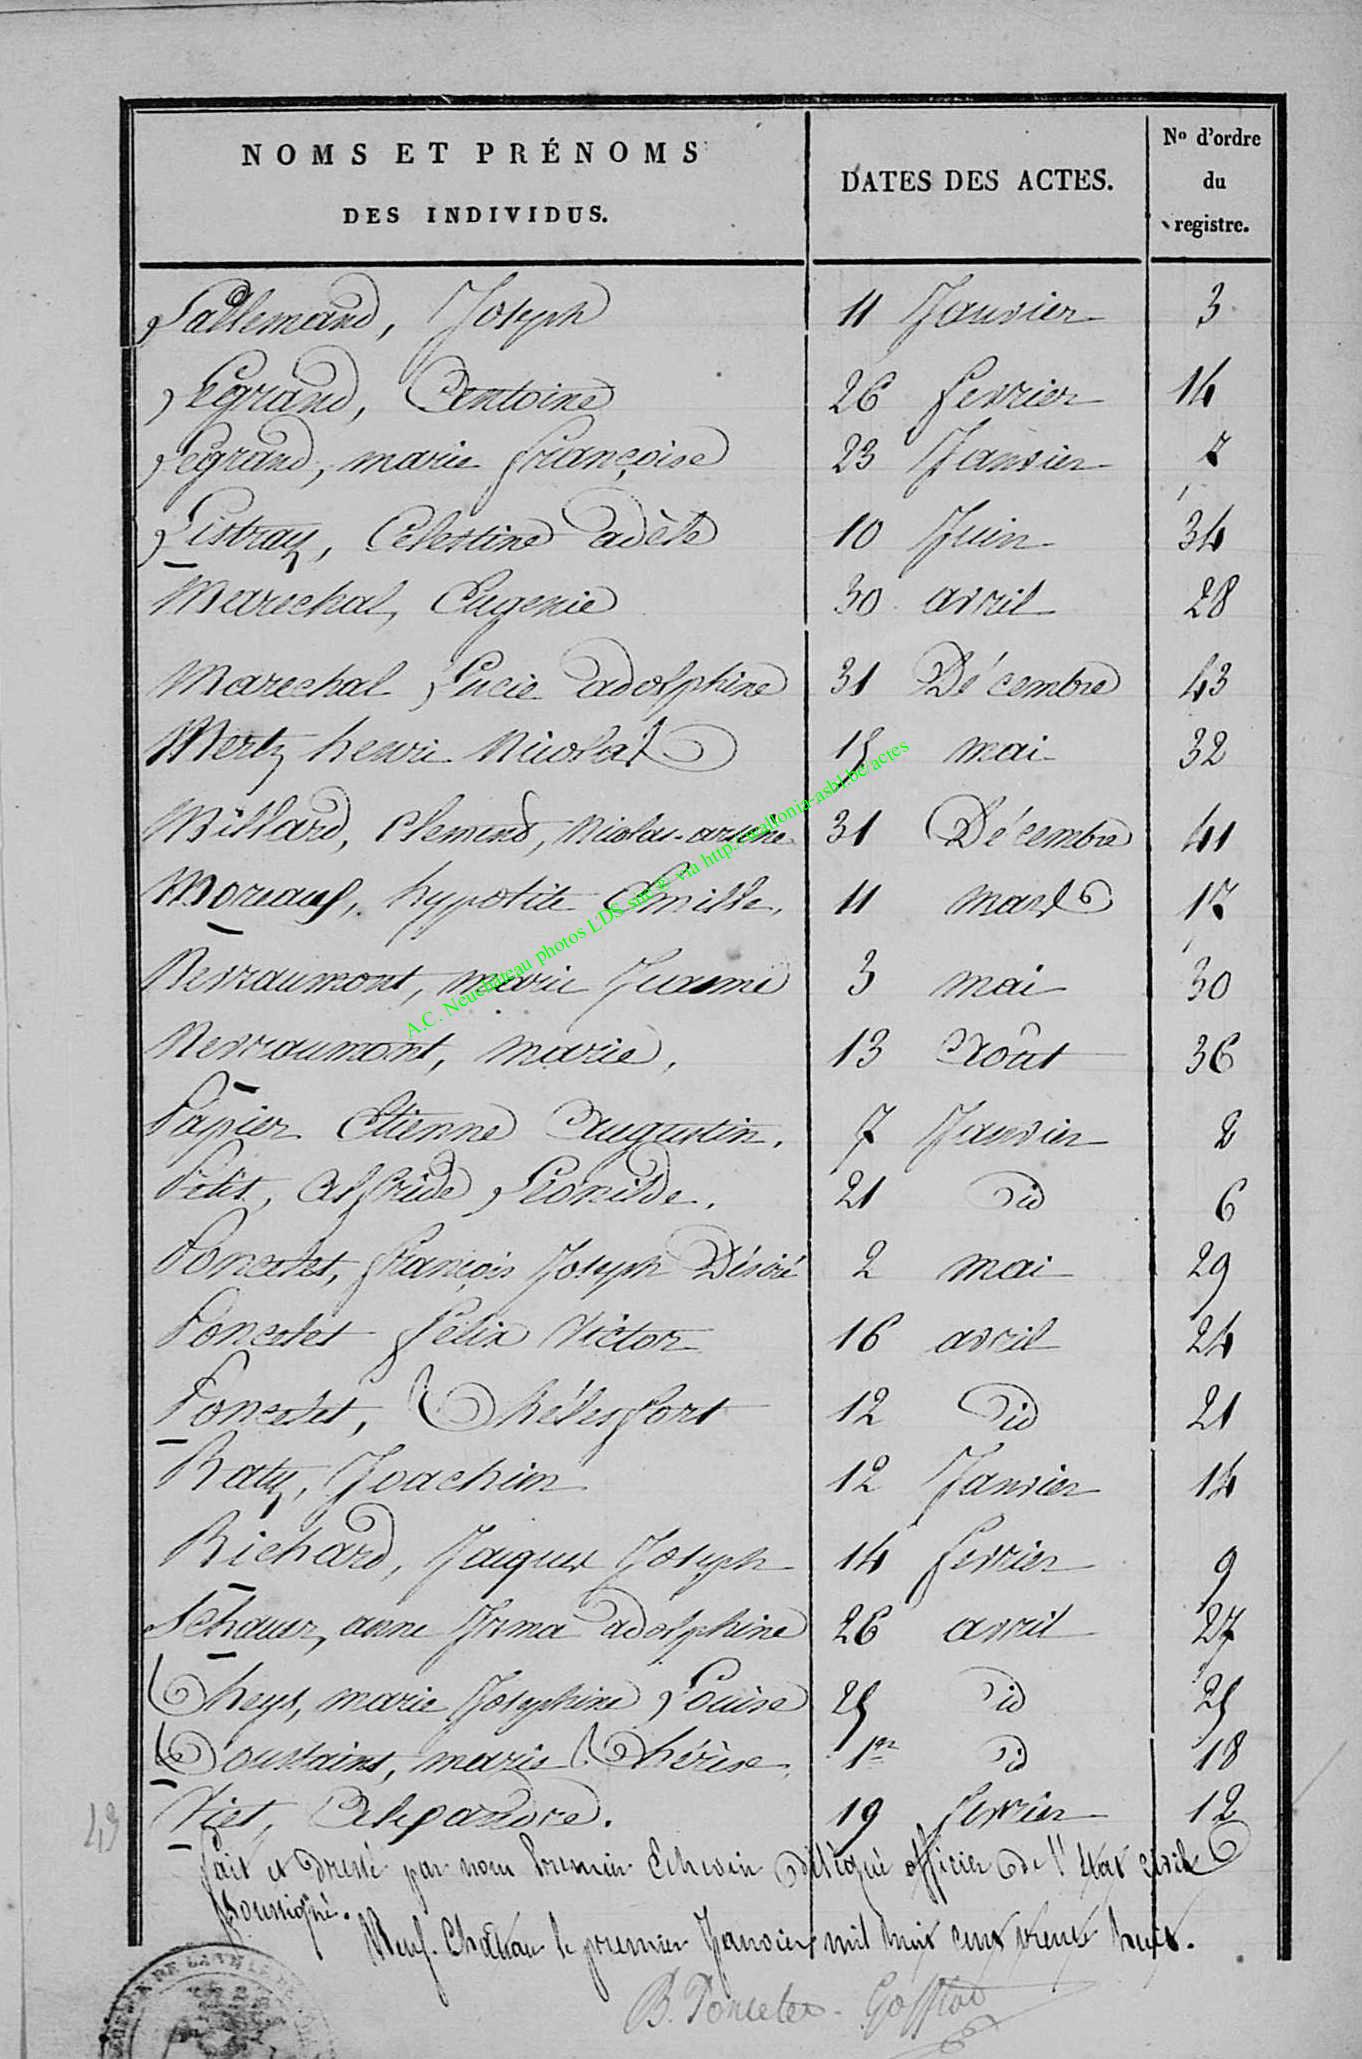 NOMS ET PRÉNOMS
DES INDIVIDUS.
DATES DES ACTES.
No d'ordre
du
registre.
Lallemand, Joseph 11 Janvier 3
Legrand, Antoine 26 fevrier 14
Legrand, marie françoise 23 Janvier 7
Listray, Celestine adèle 10 Juin 34
Marechal, Eugenie 30 avril 28
Marechal Lucie adolphine 31 Décembre 43
Mertz henri Nicolas 15 mai 32
Millard, Clement, Nicolas-arsene 31 Décembre 41
Moreaux, hypolite Camille, 11 mars 17
Nevraumont, marie 3 mai 30
Nevraumont, marie, 13 Août 36
Papier Etienne Augustin, 7 Janvier 2
Petit, Leonilde, 21 id 6
Poncelet, françois Joseph Désiré 2 mai 29
Poncelet felix Victor 16 avril 24
Poncelet, Thélesfort 12 id 21
Raty, Joachim 12 Janvier 14
Richard, Jaques Joseph 14 fevrier 9
Schauer, anne Irma adolphine 26 avril 27
Theys, marie Josephine Louise 25 id 25
Toussaint, marie Thérèse, 1er id 18
Viet, Alexandre. 19 fevrier 12
43
fait et dressé par nous Premier Echevin délégué officier de l'Etat civil
Soussigné.
Neuf-Château le premier Janvier mil huit cent trente huit.
B. Poncelet
A.C. Neuchateau photos LDS via http://wallonia-asbl.be/actes